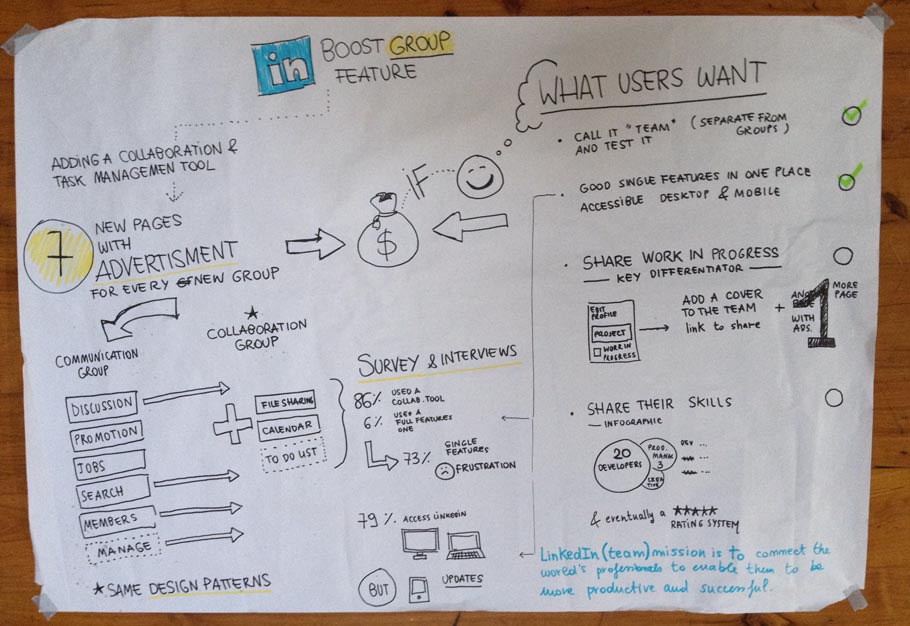 in
BOOST GROUP
FEATURE
ADDING A COLLABORATION &
TASK MANAGEMEN TOOL
7
NEW PAGES
WITH
ADVERTISMENT
FOR EVERY NEW GROUP
COMMUNICATION
GROUP
DISCUSSION
PROMOTION
JOBS
SEARCH
MEMBERS
MANAGE
★ SAME DESIGN PATTERNS
★
COLLABORATION
GROUP
FILE SHARING
CALENDAR
TO DO LIST
IF
$
SURVEY & INTERVIEWS
86% USED A
COLLAB. TOOL
6% USED A
FULL FEATURES
ONE
73% SINGLE
FEATURES
FRUSTRATION
79% ACCESS LINKEDIN
BUT
UPDATES
WHAT USERS WANT
• CALL IT "TEAM" (SEPARATE FROM
AND TEST IT GROUPS)
• GOOD SINGLE FEATURES IN ONE PLACE
ACCESSIBLE DESKTOP & MOBILE
• SHARE WORK IN PROGRESS
— KEY DIFFERENTIATOR —
EDIT
PROFILE
PROJECT
WORK IN
PROGRESS
ADD A COVER
TO THE TEAM
link to share
+
1
MORE
PAGE
WITH
ADS.
• SHARE THEIR SKILLS
— INFOGRAPHIC
20
DEVELOPERS
PROD.
MANAG
3
CREA
TIVE
DEV ...
& eventually a ★★★★★
RATING SYSTEM
LinkedIn (team) mission is to connect the
world's professionals to enable them to be
more productive and successful.